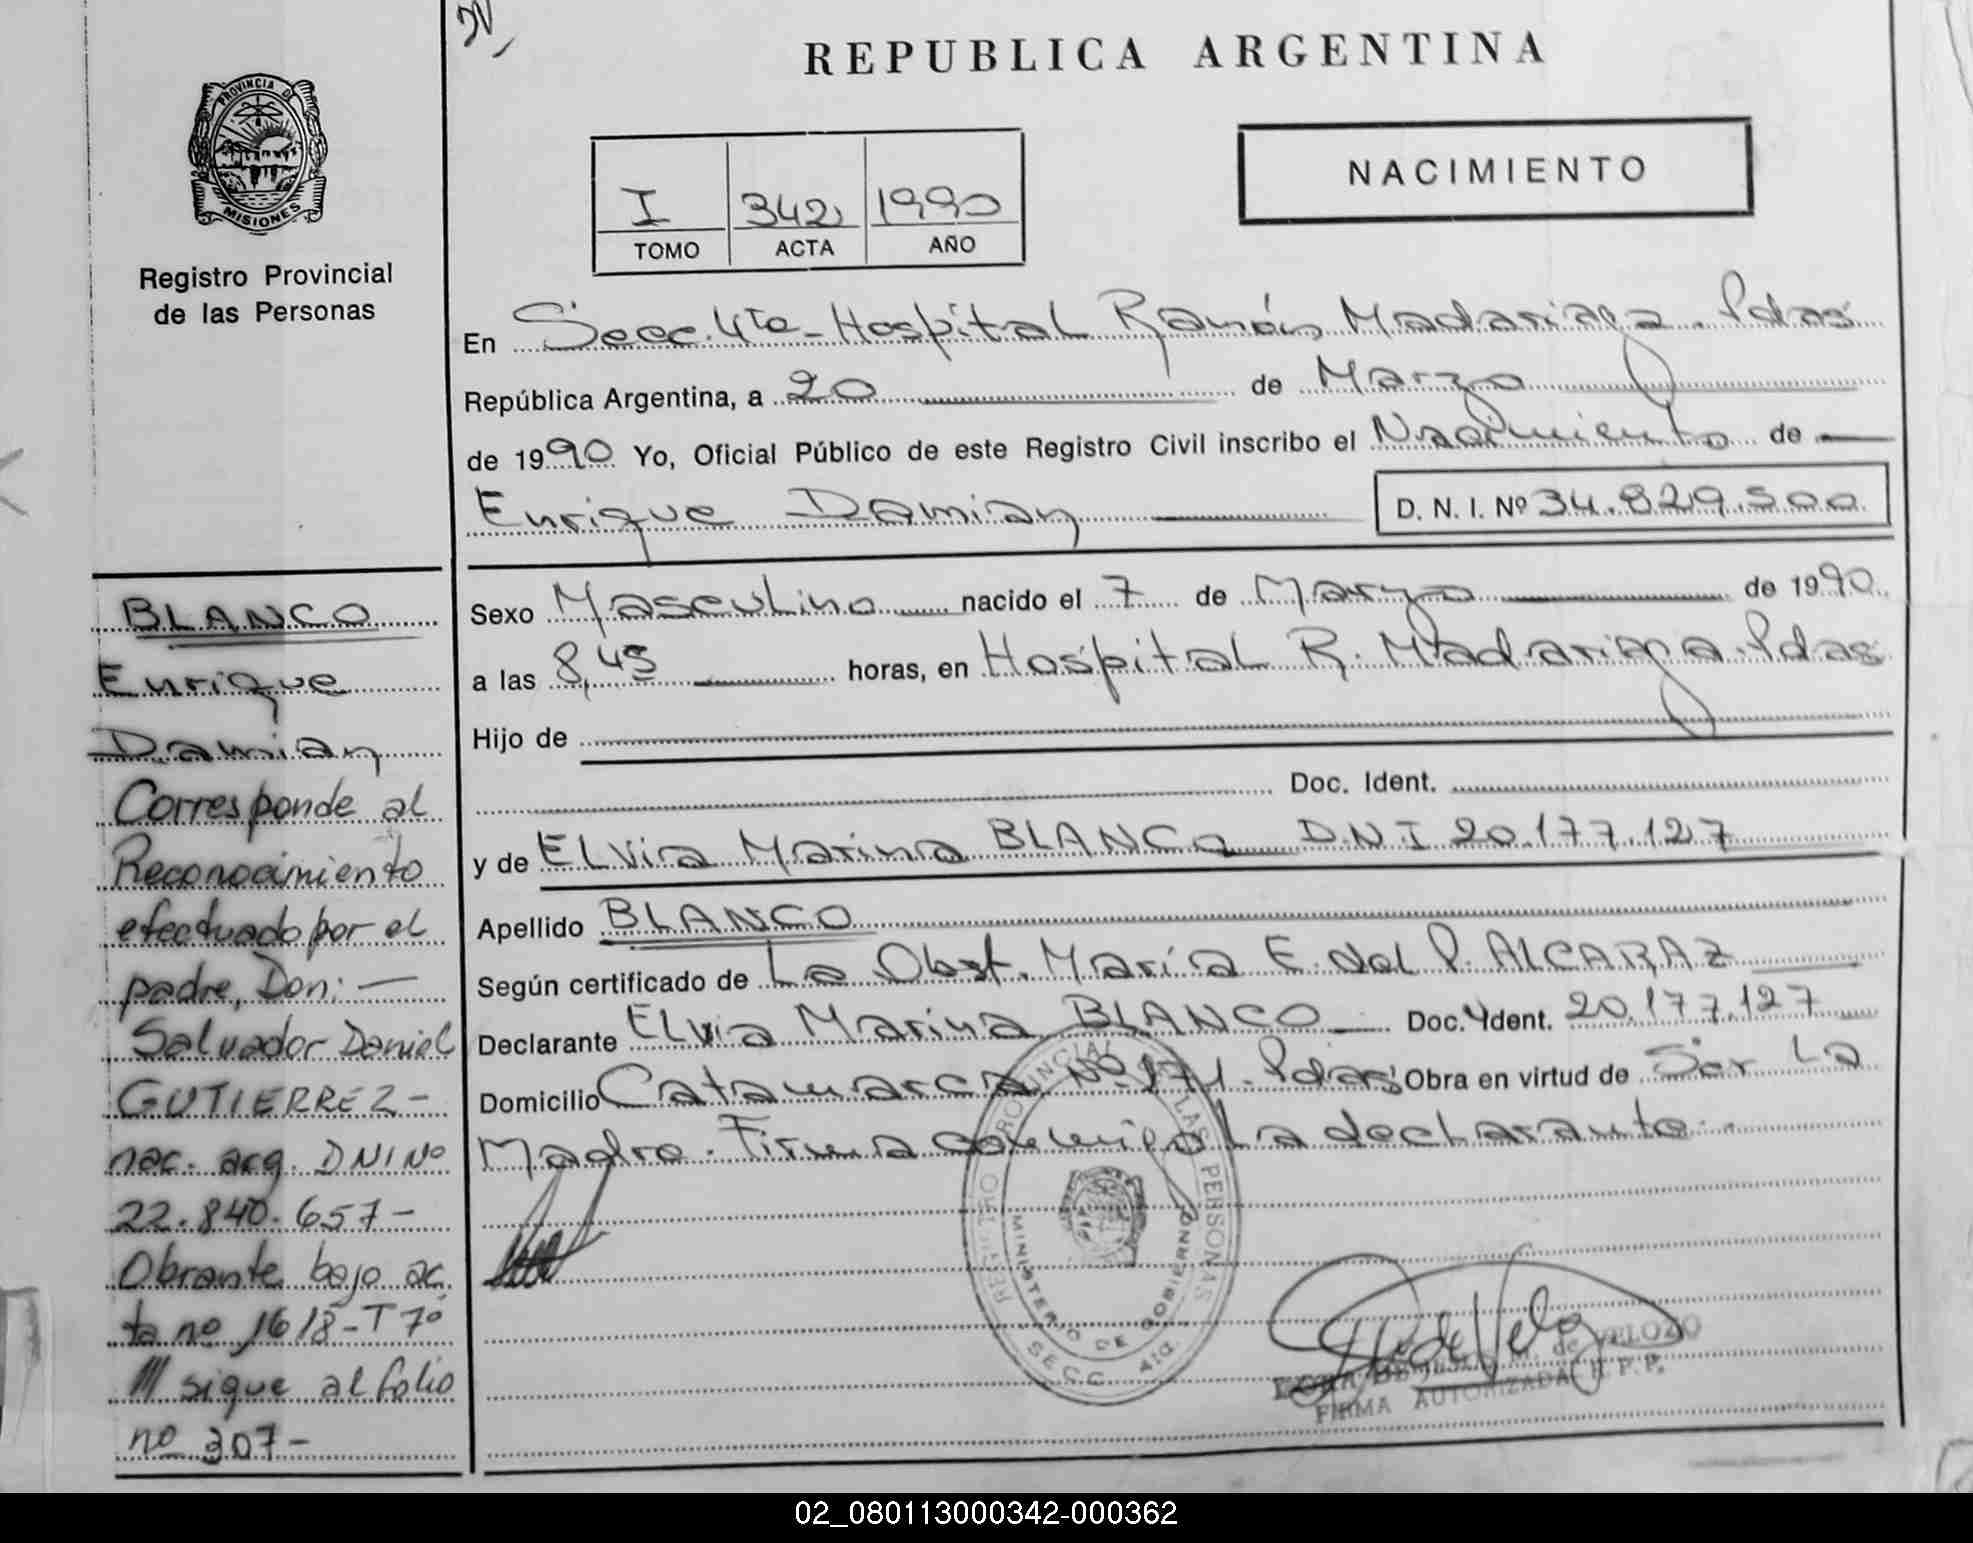 REPUBLICA ARGENTINA
PROVINCIA DE
MISIONES
Registro Provincial
de las Personas
I 342 1990
TOMO ACTA AÑO
NACIMIENTO
En Secc. 4ta - Hospital Ramón Madariaga. Pdas
República Argentina, a 20 de Marzo
de 1990 Yo, Oficial Público de este Registro Civil inscribo el Nacimiento de
Enrique Damian D. N. I. Nº 34.829.500
Sexo Masculino nacido el 7 de Marzo de 1990
a las 8,45 horas, en Hospital R. Madariaga. Pdas
Hijo de
Doc. Ident.
y de Elvia Marina BLANCO D.N.I 20.177.127
Apellido BLANCO
Según certificado de La Obst. María E. del P. ALCARAZ
Declarante Elvia Marina BLANCO Doc. Ident. 20.177.127
Domicilio Catamarca Nº 171. Pdas Obra en virtud de Ser La
Madre. Firma conmigo La declarante.
BLANCO
Enrique
Damian
Corresponde al
Reconocimiento
efectuado por el
padre, Don: —
Salvador Daniel
GUTIERREZ -
nac. arg. DNI Nº
22.840.657 -
Obrante bajo ac
ta nº 1618 - T 7º
/// sigue al folio
nº 307 -
REGISTRO PROVINCIAL DE LAS PERSONAS
MINISTERIO DE GOBIERNO
SECC. 4ta.
M. de VELOZO
FIRMA AUTORIZADA R. P. P.
02_080113000342-000362